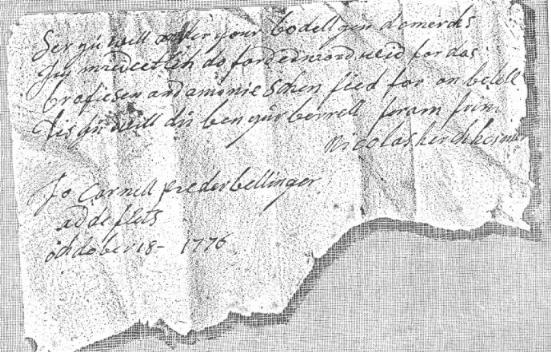 Ser yu will order your bodellyen do merchs
Immiedeetlih do fordedword weid for das
brofiesen and amonieschen fied for on betell
Dis yu will dis ben yur berrell foram frind
Nicolas herchheimer
To Cornell pieder bellinger
ad de flets
ochdober 18- 1776